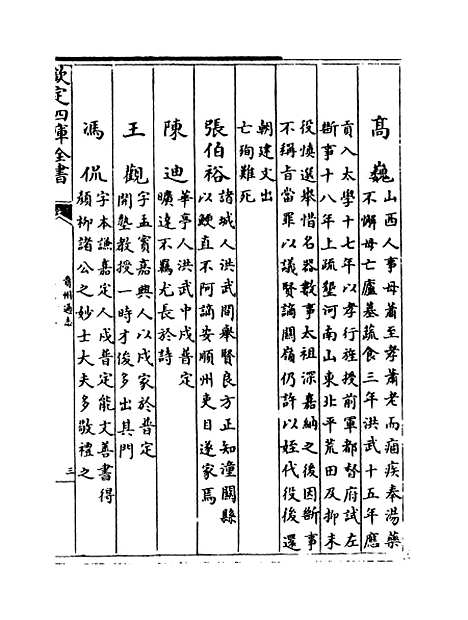 高巍山西人事母蕭至孝蕭老而痼疾奉湯藥
不懈母亡廬墓蔬食三年洪武十五年應
貢入太學十七年以孝行旌授前軍都督府試左
斷事十八年上疏墾河南山東北平荒田及抑末
役慎選舉惜名器數事太祖深嘉納之後因斷事
不稱旨當罪以議賢謫關嶺仍許以姪代役後還
朝建文出
亡殉難死
張伯裕諸城人洪武間舉賢良方正知潼關縣
以鯁直不阿謫安順州吏目遂家焉
陳迪華亭人洪武中戍普定
曠達不羈尤長於詩
王觀字孟賓嘉興人以戍家於普定
開塾教授一時才俊多出其門
馮侃字本謙嘉定人戍普定能文善書得
顏柳諸公之妙士大夫多敬禮之
欽定四庫全書
貴州通志
三